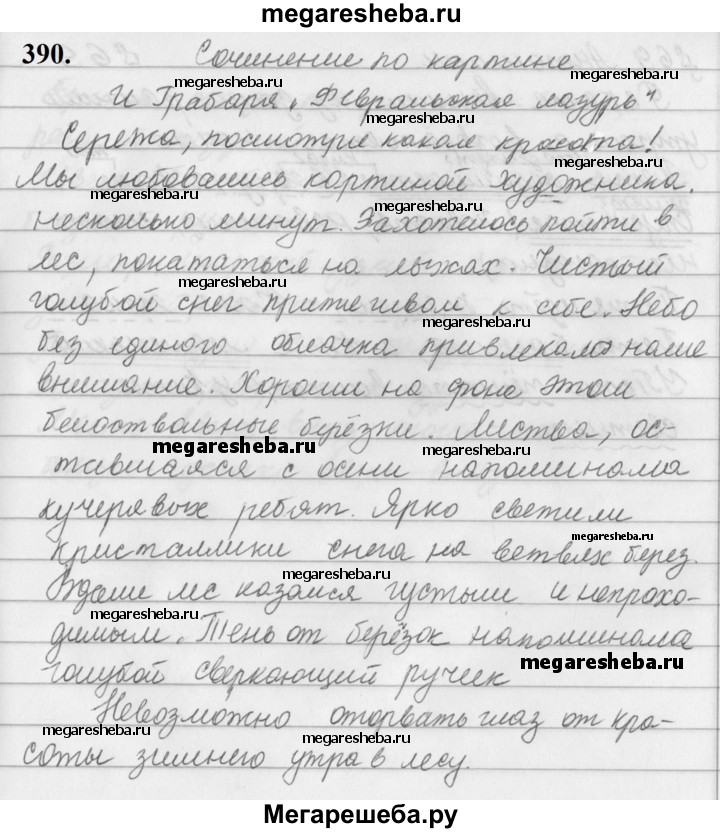 megaresheba.ru
390. Сочинение по картине
megaresheba.ru
megaresheba.ru
И Грабаря „Февральская лазурь"
megaresheba.ru
Сережа, посмотри какая красота!
megaresheba.ru
megaresheba.ru
Мы любовались картиной художника.
megaresheba.ru
megaresheba.ru
несколько минут. Захотелось пойти в
megaresheba.ru
лес, покататься на лыжах. Чистый
megaresheba.ru
голубой снег притягивал к себе. Небо
megaresheba.ru
без единого облачка привлекало наше
megaresheba.ru
внимание. Хороши на фоне этом
белоствольные берёзки. Листва, ос-
megaresheba.ru
megaresheba.ru
тавшаяся с осени напоминала
кучерявых ребят. Ярко светили
megaresheba.ru
кристаллики снега на ветвях берез.
megaresheba.ru
Вдали лес казался густым и непрохо-
megaresheba.ru
megaresheba.ru
димым. Тень от берёзок напоминала
megaresheba.ru
голубой сверкающий ручеек
megaresheba.ru
Невозможно оторвать глаз от кра-
megaresheba.ru
megaresheba.ru
соты зимнего утра в лесу.
megaresheba.ru
Мегарешеба.ру